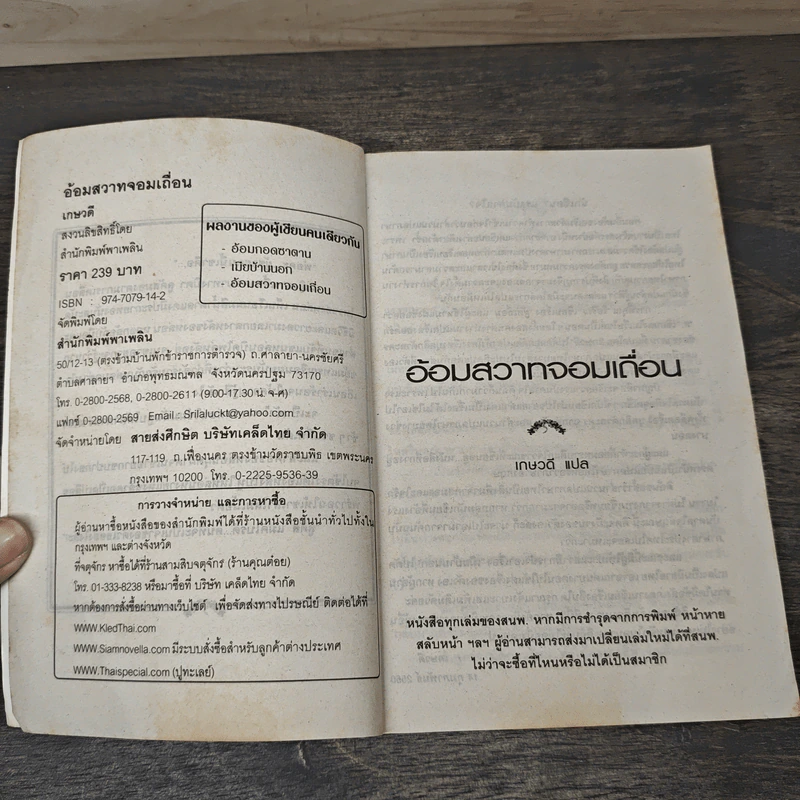 อ้อมสวาทจอมเถื่อน
เกษวดี
สงวนลิขสิทธิ์โดย
สำนักพิมพ์พาเพลิน
ราคา 239 บาท
ISBN : 974-7079-14-2
จัดพิมพ์โดย
สำนักพิมพ์พาเพลิน
50/12-13 (ตรงข้ามบ้านพักข้าราชการตำรวจ) ถ.ศาลายา-นครชัยศรี
ตำบลศาลายา อำเภอพุทธมณฑล จังหวัดนครปฐม 73170
โทร. 0-2800-2568, 0-2800-2611 (9.00-17.30 น. จ-ศ)
แฟกซ์ 0-2800-2569 Email : Srilaluckt@yahoo.com
จัดจำหน่ายโดย สายส่งศึกษิต บริษัทเคล็ดไทย จำกัด
117-119 ถ.เฟื่องนคร ตรงข้ามวัดราชบพิธ เขตพระนคร
กรุงเทพฯ 10200 โทร. 0-2225-9536-39
ผลงานของผู้เขียนคนเดียวกัน
- อ้อมกอดซาตาน
- เมียบ้านนอก
- อ้อมสวาทจอมเถื่อน
การวางจำหน่าย และการหาซื้อ
ผู้อ่านหาซื้อหนังสือของสำนักพิมพ์ได้ที่ร้านหนังสือชั้นนำทั่วไปทั้งใน
กรุงเทพฯ และต่างจังหวัด
ที่จตุจักร หาซื้อได้ที่ร้านสามสิบจตุจักร (ร้านคุณต๋อย)
โทร. 01-333-8238 หรือมาซื้อที่ บริษัท เคล็ดไทย จำกัด
หากต้องการสั่งซื้อผ่านทางเว็บไซต์ เพื่อจัดส่งทางไปรษณีย์ ติดต่อได้ที่
WWW.KledThai.com
WWW.Siamnovella.com มีระบบสั่งซื้อสำหรับลูกค้าต่างประเทศ
WWW.Thaispecial.com (ปูทะเลย์)
อ้อมสวาทจอมเถื่อน
เกษวดี แปล
หนังสือทุกเล่มของสนพ. หากมีการชำรุดจากการพิมพ์ หน้าหาย
สลับหน้า ฯลฯ ผู้อ่านสามารถส่งมาเปลี่ยนเล่มใหม่ได้ที่สนพ.
ไม่ว่าจะซื้อที่ไหนหรือไม่ได้เป็นสมาชิก